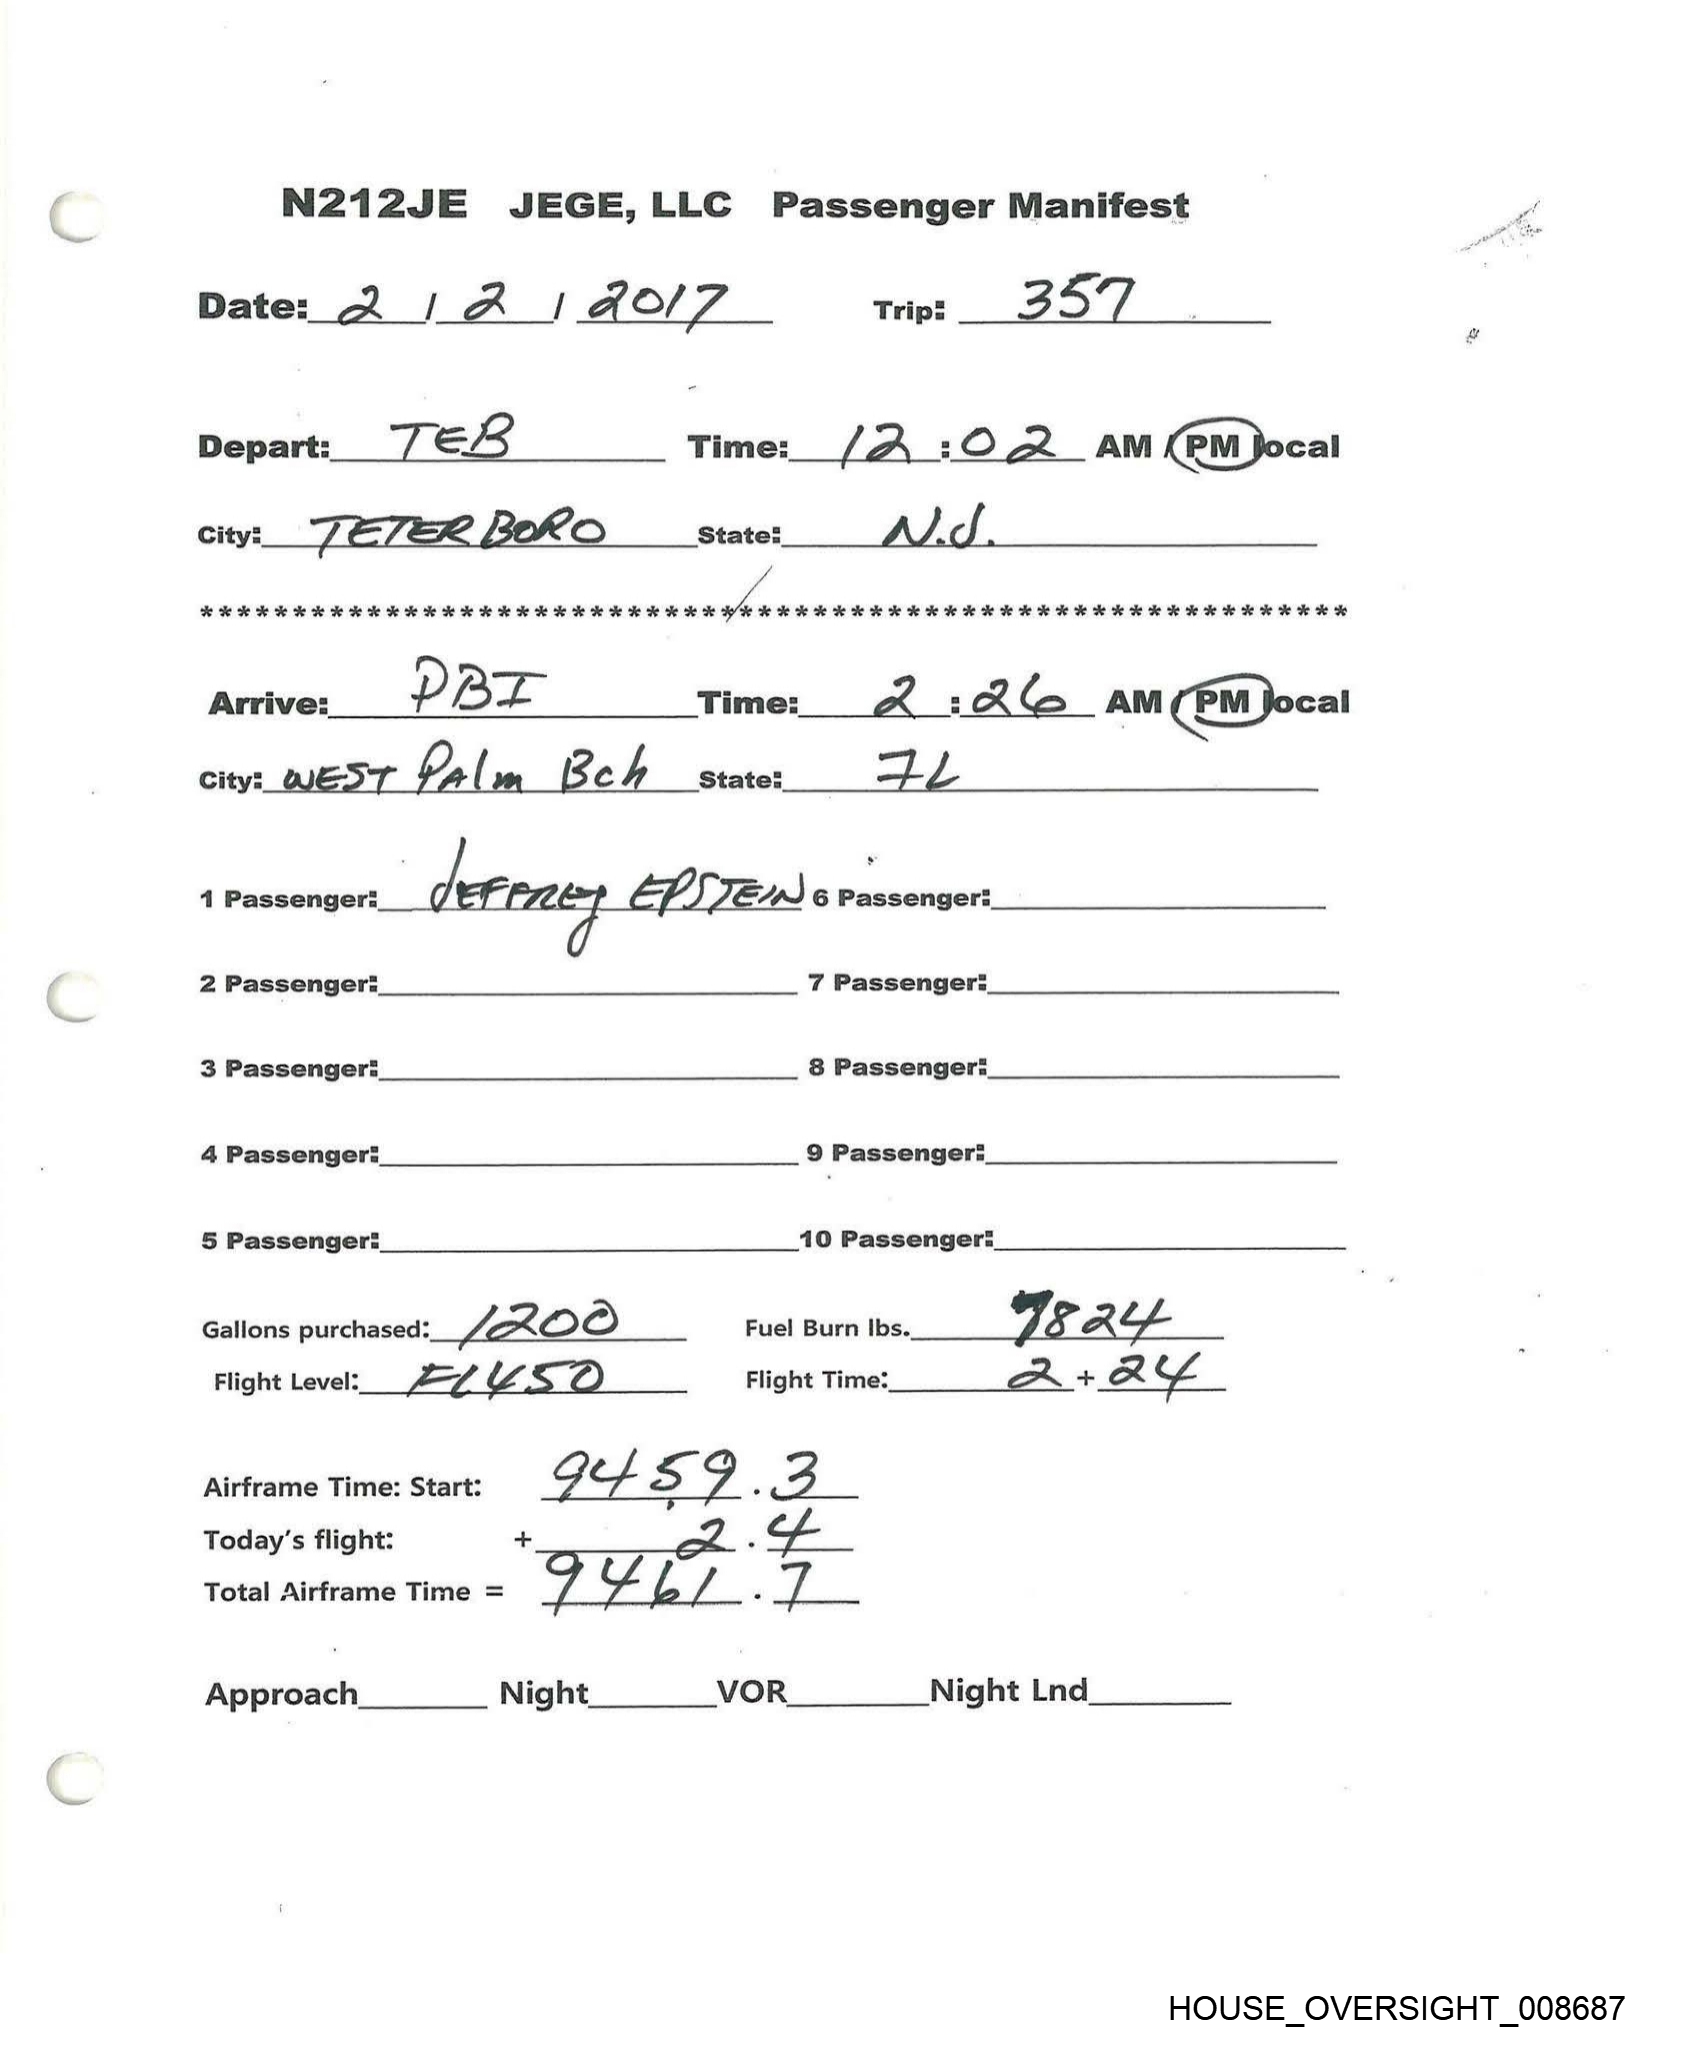 N212JE JEGE, LLC Passenger Manifest
Date: 2 / 2 / 2017 Trip: 357
Depart: TEB Time: 12 : 02 AM / PM local
City: TETERBORO State: N.J.
**************************************************************
Arrive: PBI Time: 2 : 26 AM / PM local
City: WEST PAlm Bch State: FL
1 Passenger: JEFFREY EPSTEIN 6 Passenger:
2 Passenger: 7 Passenger:
3 Passenger: 8 Passenger:
4 Passenger: 9 Passenger:
5 Passenger: 10 Passenger:
Gallons purchased: 1200 Fuel Burn lbs. 7824
Flight Level: FL450 Flight Time: 2 + 24
Airframe Time: Start: 9459 . 3
Today's flight: + 2 . 4
Total Airframe Time = 9461 . 7
Approach Night VOR Night Lnd
HOUSE_OVERSIGHT_008687